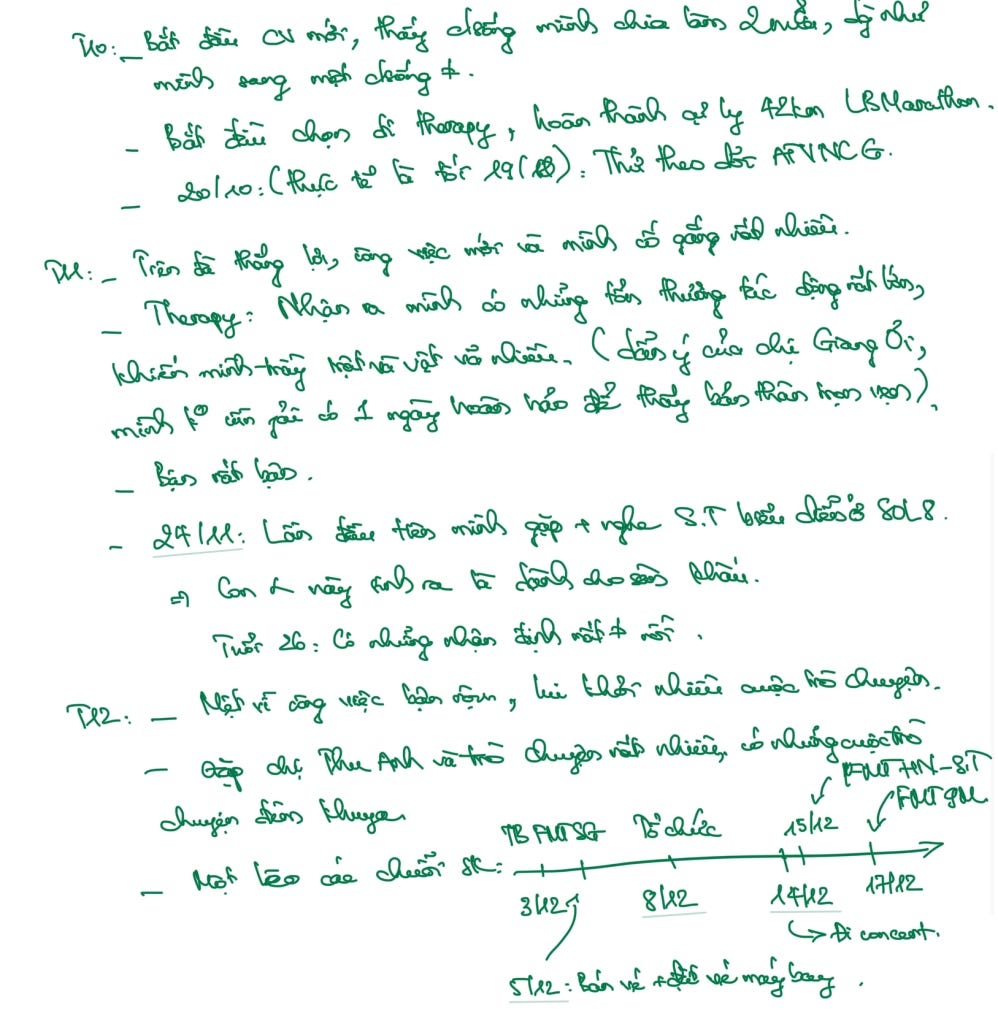 T10: – Bắt đầu CV mới, thấy chồng mình chia làm 2 nửa, gg như
mình sang một chồng ≠.
– Bắt đầu chọn đi therapy, hoàn thành cự ly 42km LBMarathon.
– 20/10: (thực tế là tối 19/10): Thử theo dõi ATVNCG.
T11: – Trên đà thắng lợi, công việc mới và mình cố gắng rất nhiều.
– Therapy: Nhận ra mình có những tổn thương tác động rất lớn,
khiến mình trầy trật và vật vã nhiều. (dẫn ý của chị Giang Ơi,
mình ko cần phải có 1 ngày hoàn hảo để thấy bản thân trọn vẹn).
– Bận rất bận.
– 24/11: Lần đầu tiên mình gặp + nghe S.T biểu diễn ở SOL8.
⇒ Con này sinh ra là dành cho sân khấu.
Tuổi 26: Có những nhận định rất ≠ rồi.
T12: – Mệt vì công việc bận rộn, lui khỏi nhiều cuộc trò chuyện.
– Gặp chị Thu Anh và trò chuyện rất nhiều, có những cuộc trò
chuyện đêm khuya.
– Một lèo các chuỗi SK:
TB FMT SG Tổ chức 15/12 FMT HN-S.T FMT
3/12 8/12 14/12 17/12
↳ Đi concert.
5/12: Bán vé + đặt vé máy bay.